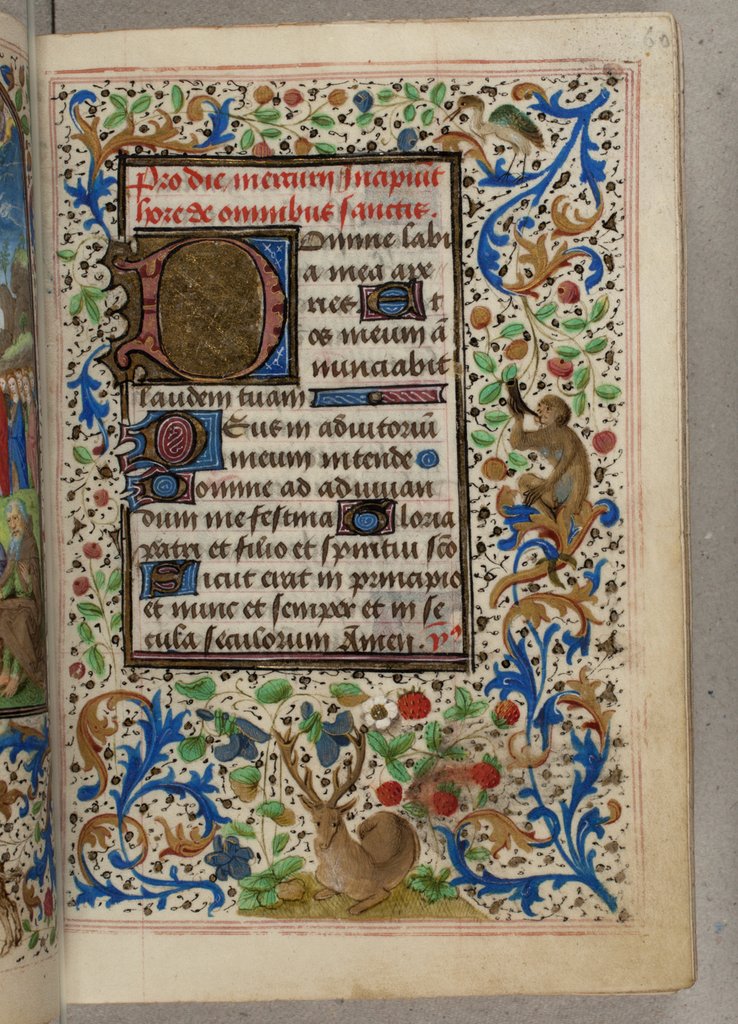 60
Pro die mercurij Incipiūt
hore de omnibus sanctis.
Domine labi
a mea ape
ries Et
os meum ā
nunciabit
laudem tuam
Deus in adiutoriū
meum intende
Domine ad adiuuan
dum me festina Gloria
patri et filio et spiritui sc̄o
Sicut erat in principio
et nunc et semper et in se
cula seculorum Amen. ps